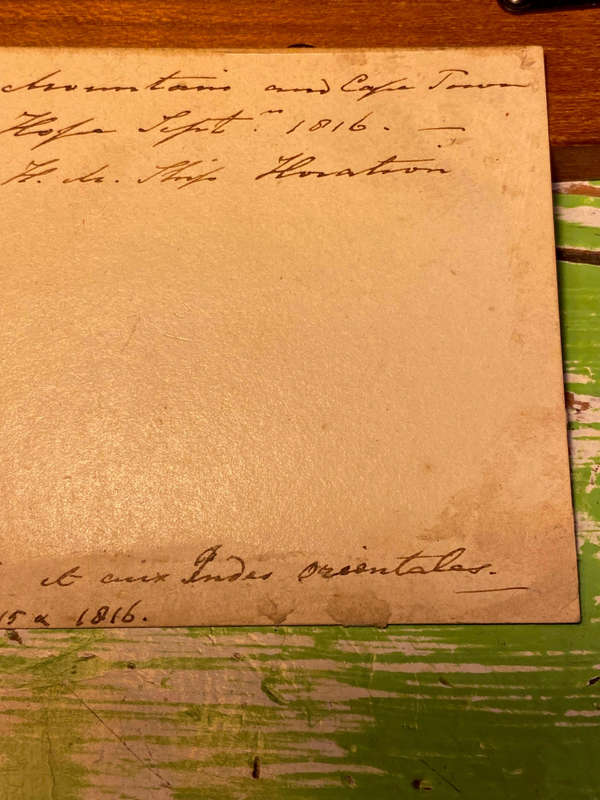 Mountains and Cape Town
Hope Septr. 1816. —
H. M. Ship Horation
et aux Indes orientales.
15 a 1816.